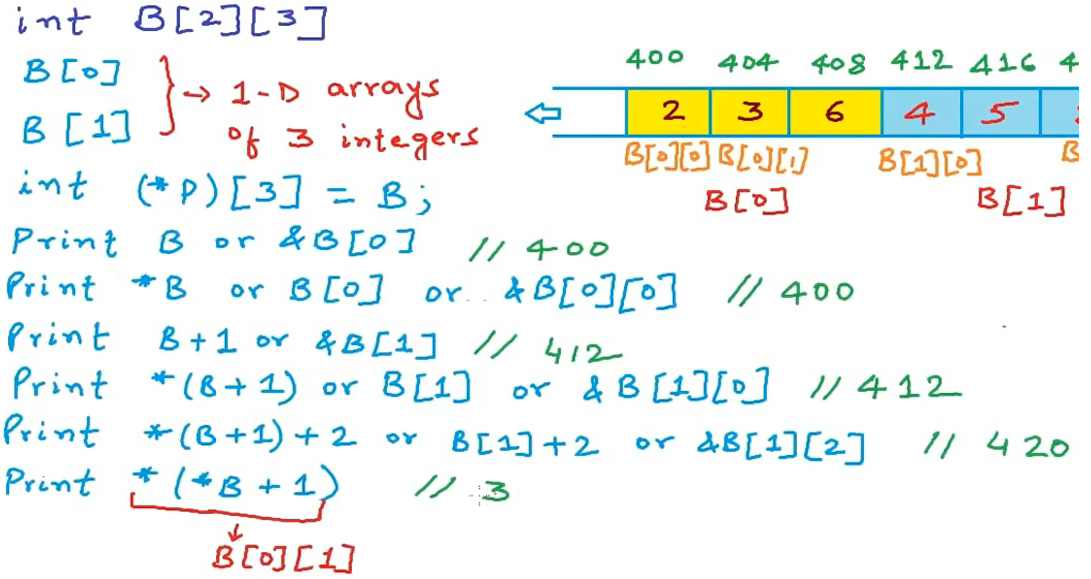 int B[2][3]
B[0]
B[1]
→ 1-D arrays
of 3 integers
400 404 408 412 416 4
2 3 6 4 5
B[0][0] B[0][1] B[1][0] B
B[0] B[1]
int (*P)[3] = B;
Print B or &B[0] // 400
Print *B or B[0] or &B[0][0] // 400
Print B+1 or &B[1] // 412
Print *(B+1) or B[1] or &B[1][0] // 412
Print *(B+1)+2 or B[1]+2 or &B[1][2] // 420
Print *(*B+1) // 3
B[0][1]